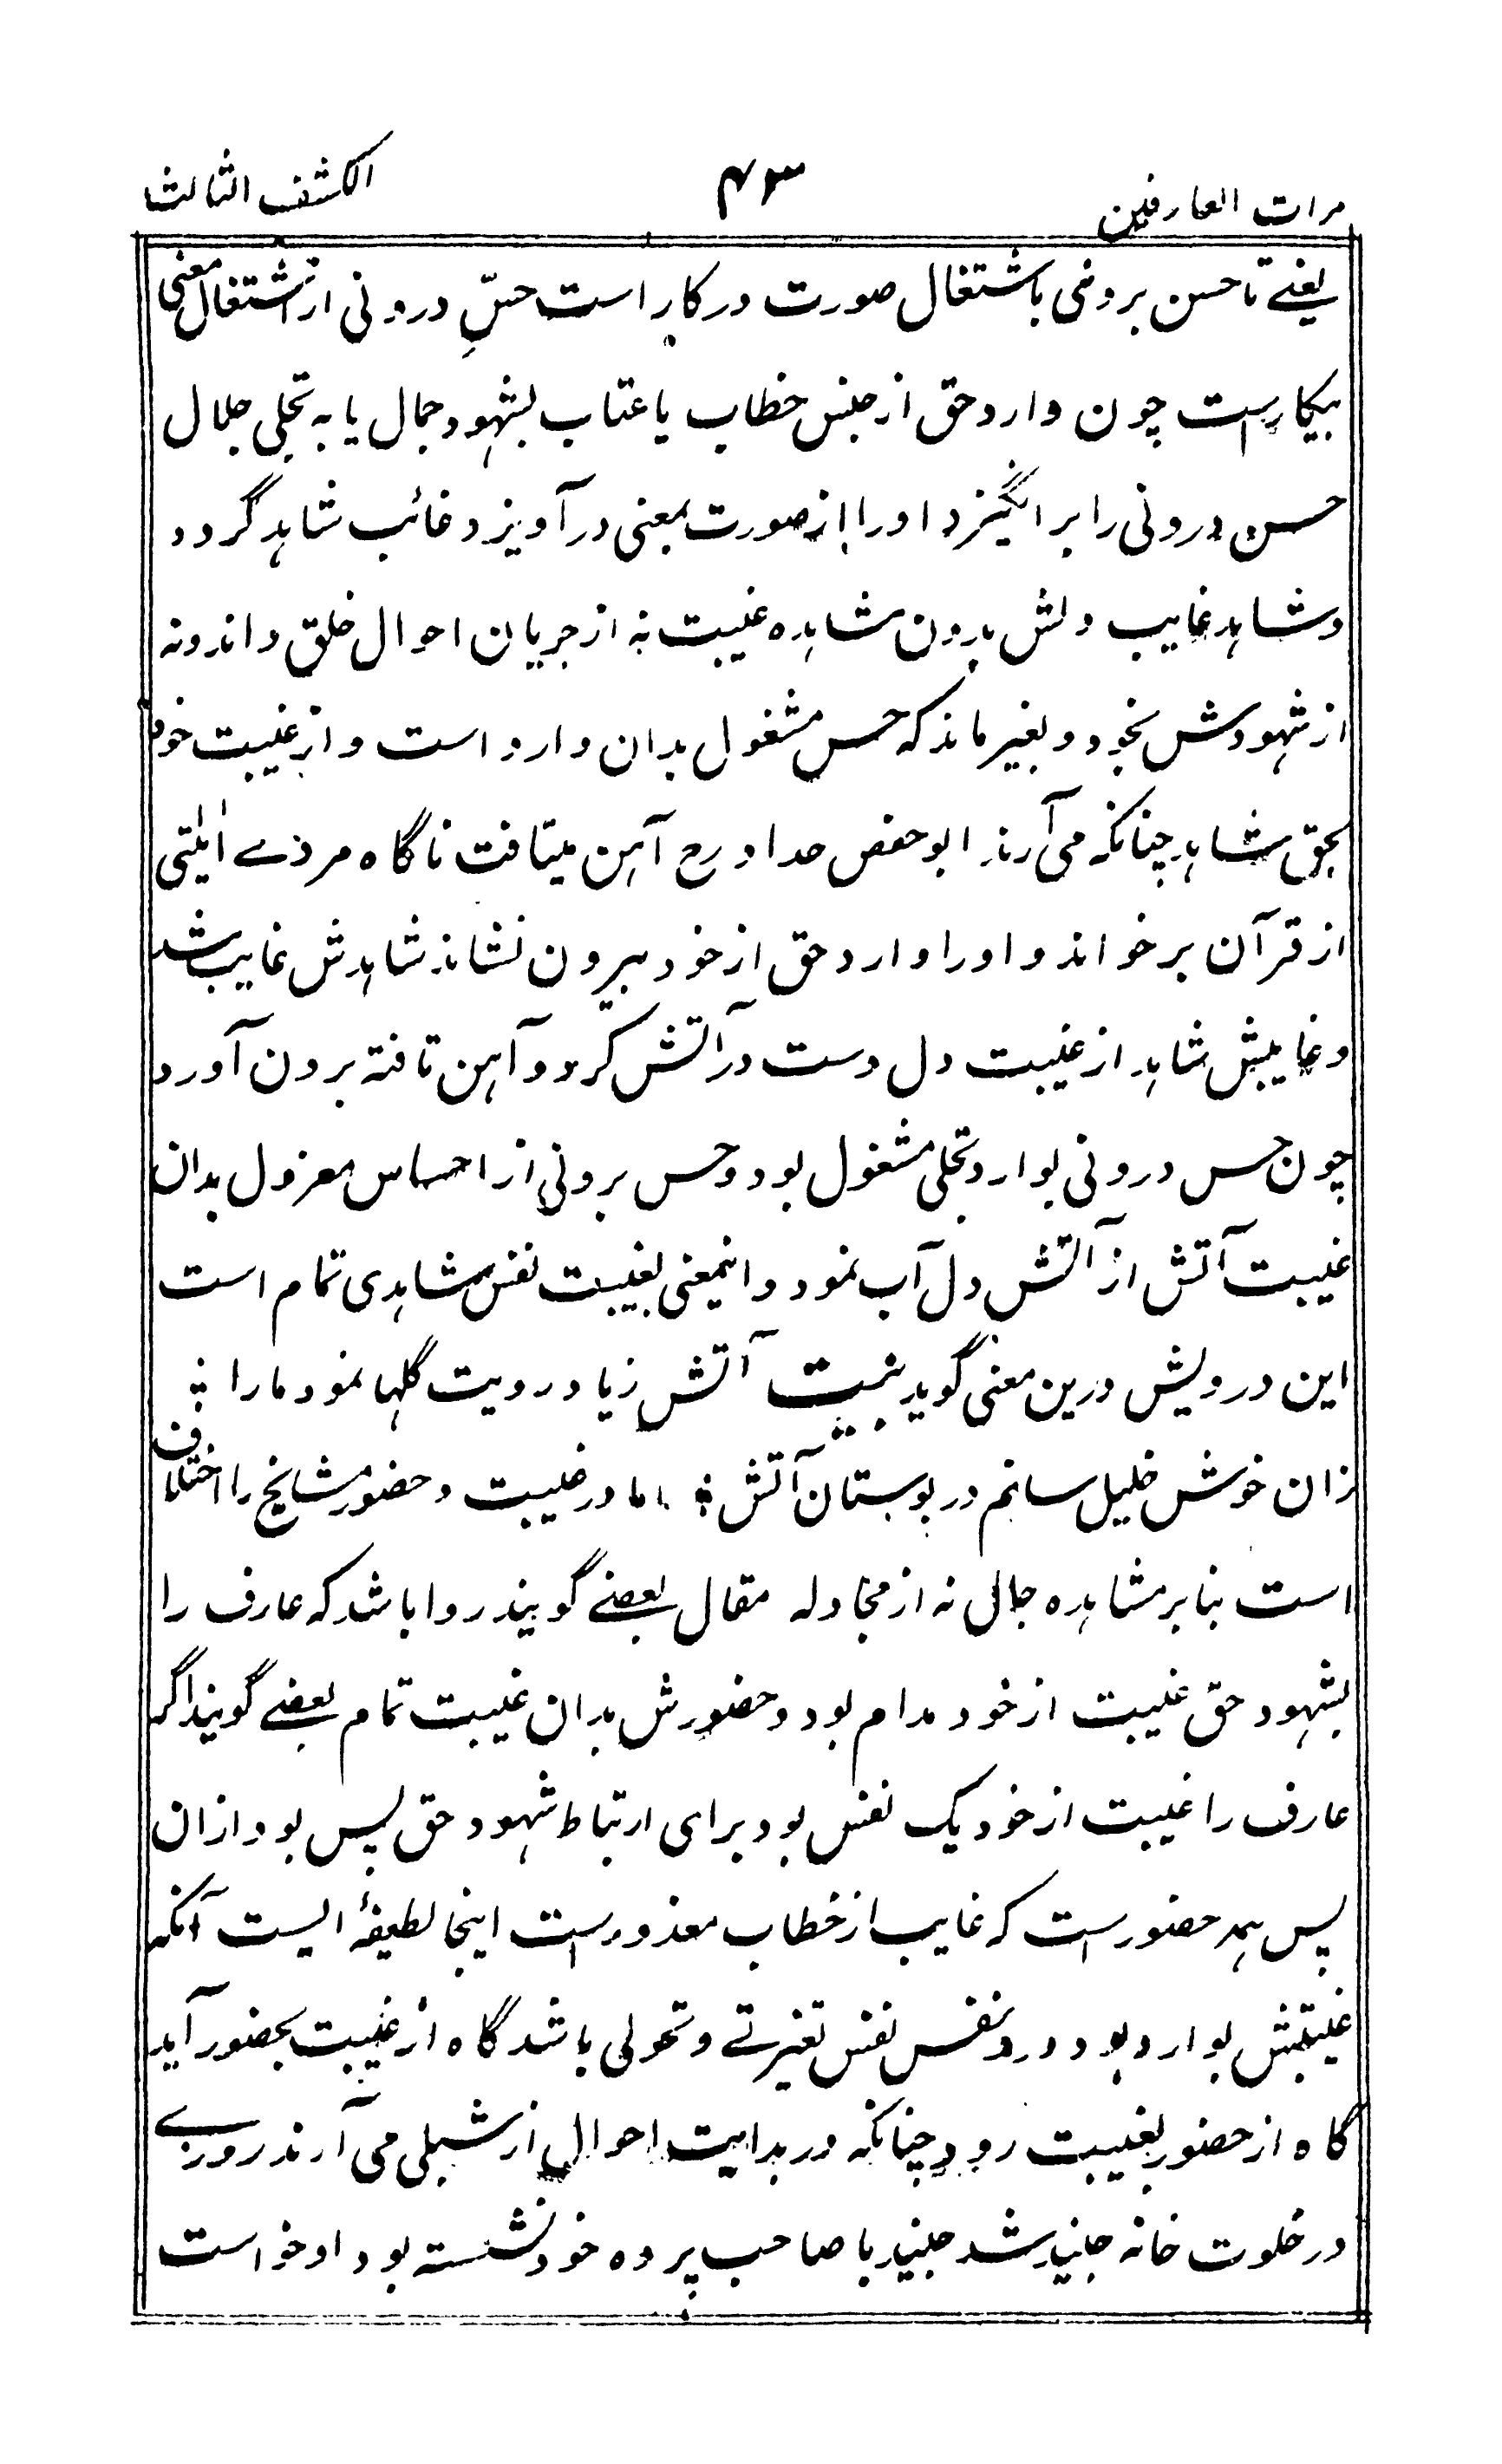 مرات العارفین ۴۳ الکشف الثالث
یعنے تا حسن برونی باشتغال صورت درکار است حسِّ درونی از اشتغال معنی
بیکارست چون وارد حق از جنس خطاب یا عتاب بشہود جمال یا بہ تجلی جلال
حسن درونی را بر انگیزد اورا از صورت بمعنی در آویزد غائب شاہد گردد
وشاہد غایب دلش بدون مشاہدہ غیبت نہ از جریان احوال خلق داند ونہ
از شہودش بخود و بغیر ماند کہ حس مشغول بدان وارد است و از غیبت خود
بحق مشاہد چنانکہ می آرند ابو حفص حداد رح آہن میتافت ناگاہ مردے اٰیٰتی
از قرآن برخواند و اورا وارد حق از خود بیرون نشاند شاہدش غایب شد
و غایبش شاہد از غیبت دل دست در آتش کرد و آہن تافتہ برون آورد
چون حس درونی بوارد تجلی مشغول بود وحس برونی از احساس معزول بدان
غیبت آتش از آتش دل آب نمود و اینمعنی بغیبت نفس شاہدی تمام است
این درویش درین معنی گوید بیت آتش زیاد رویت گلہا نمود مارا ؞
زان خوش خلیل سانم در بوستان آتش ؞ اما در غیبت و حضور مشایخ را اختلاف
است بنابر مشاہدہ جمال نہ از مجادلہ مقال بعضے گویند روا باشد کہ عارف را
بشہود حق غیبت از خود مدام بود و حضورش بدان غیبت تمام بعضے گویند اگر
عارف را غیبت از خود یک نفس بود برای ارتباط شہود حق بس بود ازان
پس ہمہ حضورست کہ غایب از خطاب معذورست اینجا لطیفۂ ایست آنکہ
غیبتش بوارد بود در دو نفس نفس تغیرتے و تحولی باشد گاہ از غیبت بحضور آید
گاہ از حضور بغیبت رود چنانکہ در بدایت احوال از شبلی می آرند روزے
در خلوت خانہ جنید شد جنید با صاحب پردہ خود نشستہ بود او خواست